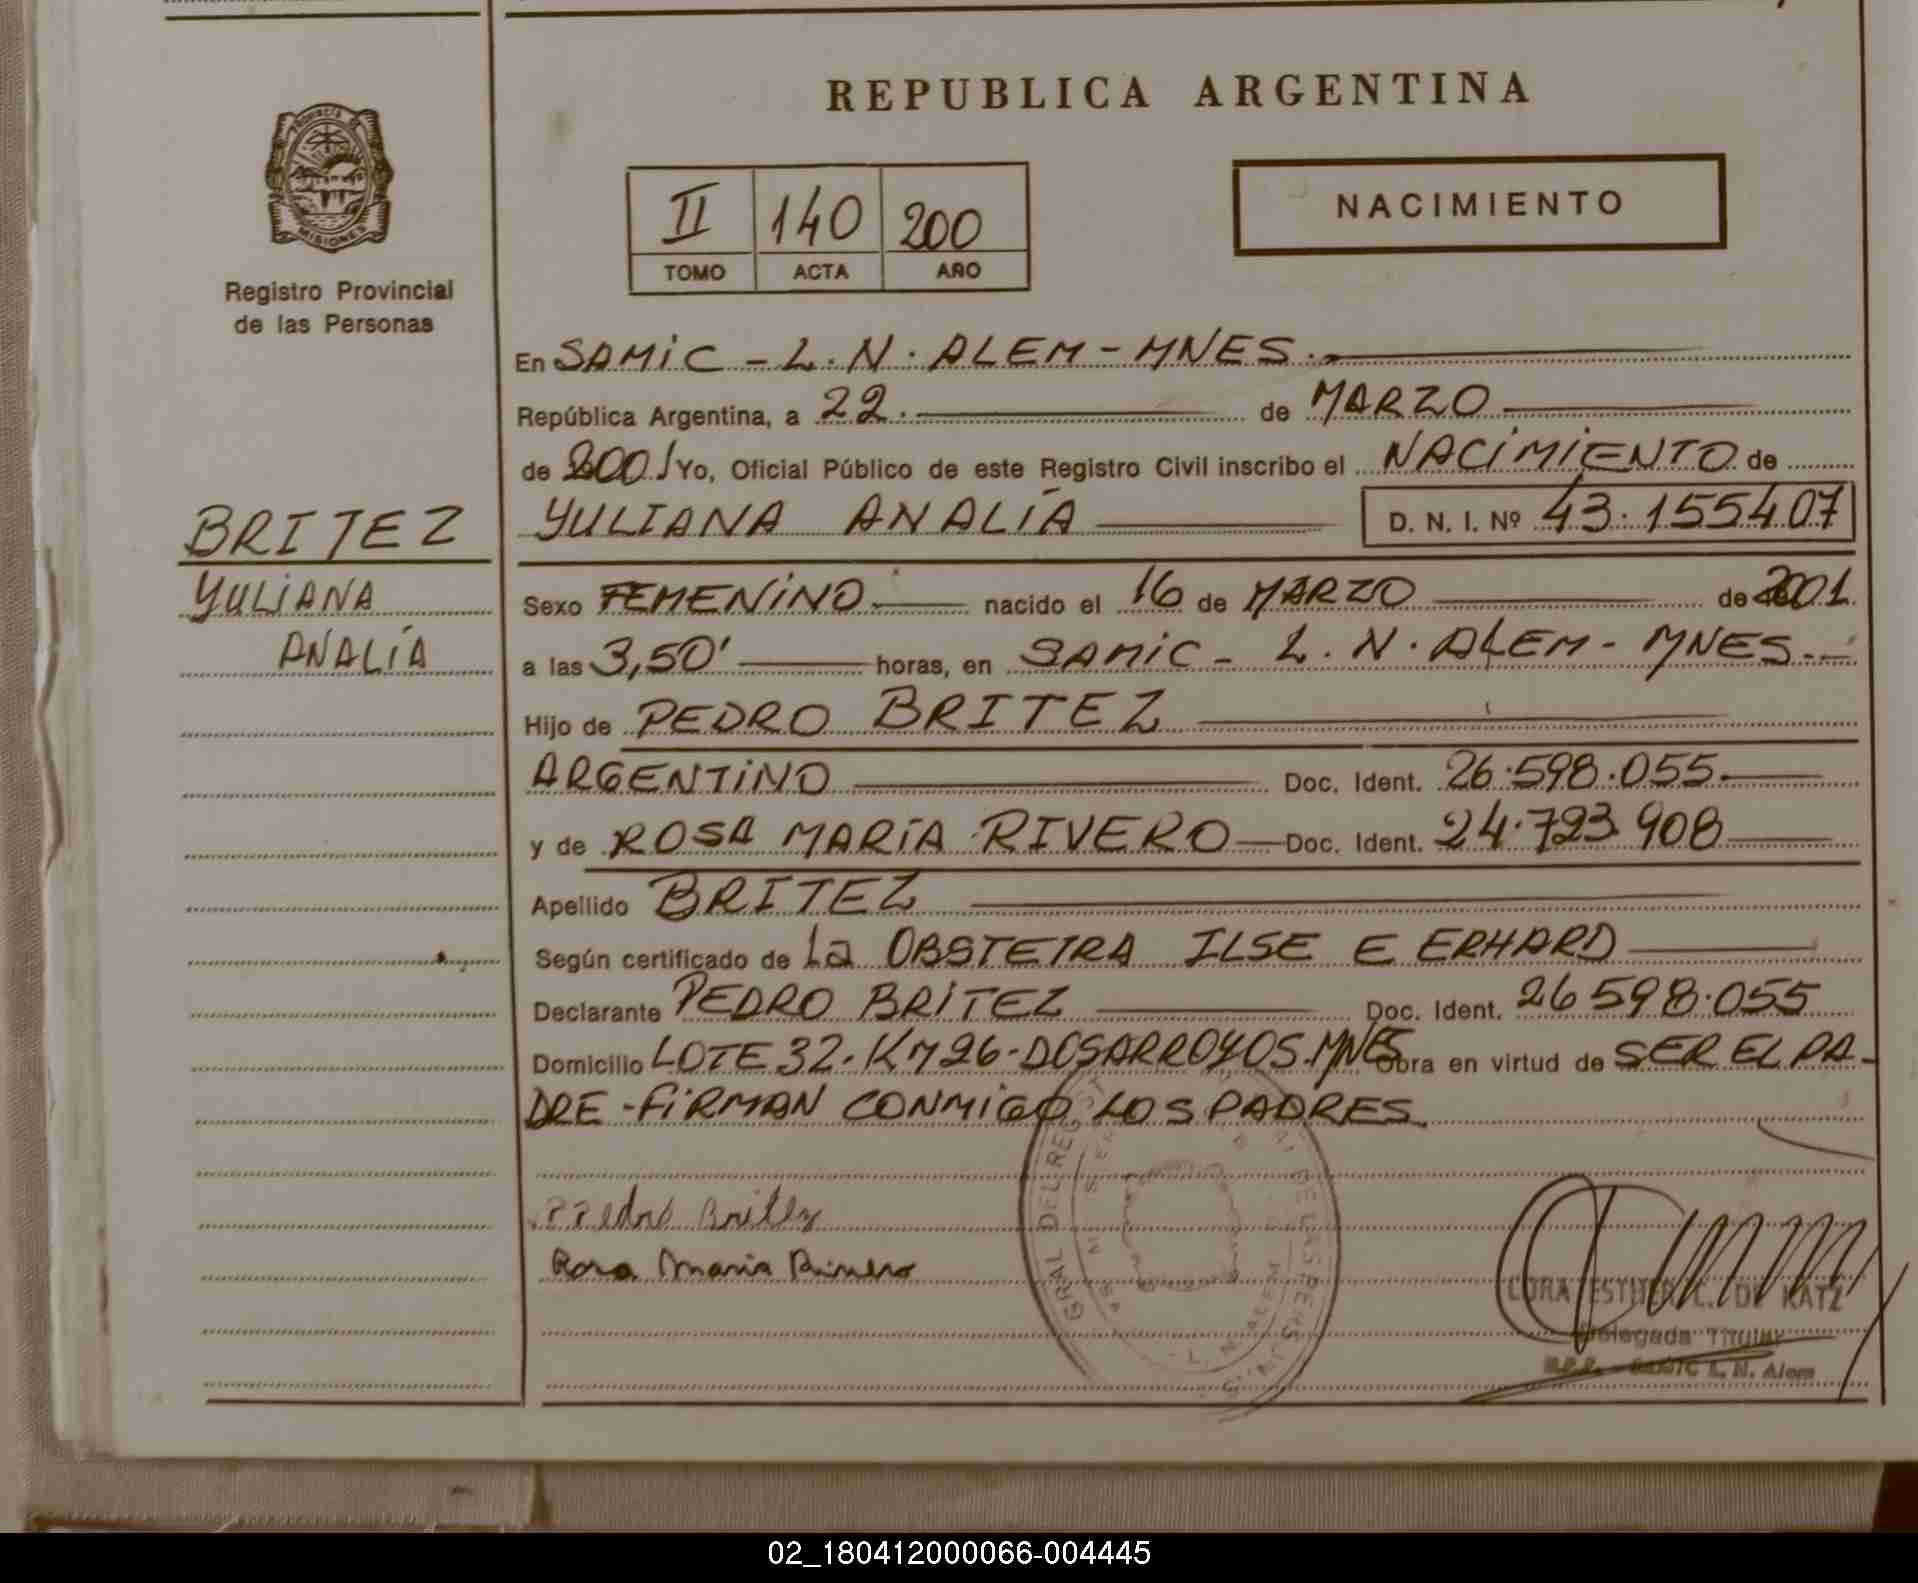 REPUBLICA ARGENTINA
PROVINCIA DE
MISIONES
Registro Provincial
de las Personas
II 140 200
TOMO ACTA AÑO
NACIMIENTO
En SAMIC - L. N. ALEM - MNES.
República Argentina, a 22. de MARZO
de 2001 Yo, Oficial Público de este Registro Civil inscribo el NACIMIENTO de
BRITEZ
YULIANA
ANALÍA
YULIANA ANALÍA D. N. I. Nº 43.155407
Sexo FEMENINO nacido el 16 de MARZO de 2001.
a las 3,50' horas, en SAMIC - L. N. ALEM - MNES.
Hijo de PEDRO BRITEZ
ARGENTINO Doc. Ident. 26.598.055.
y de ROSA MARÍA RIVERO Doc. Ident. 24.723.908
Apellido BRITEZ
Según certificado de La OBSTETRA ILSE E ERHARD
Declarante PEDRO BRITEZ Doc. Ident. 26598.055
Domicilio LOTE 32. KM 26 - DOSARROYOS. MNES Obra en virtud de SER EL PA-
DRE - FIRMAN CONMIGO LOS PADRES.
Pedro Britez
Rosa Maria Rivero
GRAL DEL REGIST
DE LAS PERS
L. N. ALEM
CORA ESTHER C. DE KATZ
Delegada Titular
SAMIC L. N. Alem
02_180412000066-004445